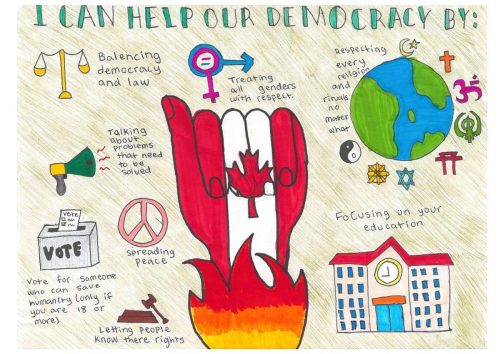 I CAN HELP OUR DEMOCRACY BY:
Balencing
democracy
and law
Treating
all genders
with respect.
Respecting
every
religion
and
rituals
no
mater
what
Talking
about
problems
that need
to be
solved
Vote
VOTE
Spreading
Peace
Vote for someone
who can save
humanity (only if
you are 18 or
more)
Letting people
know there rights
Focusing on your
education